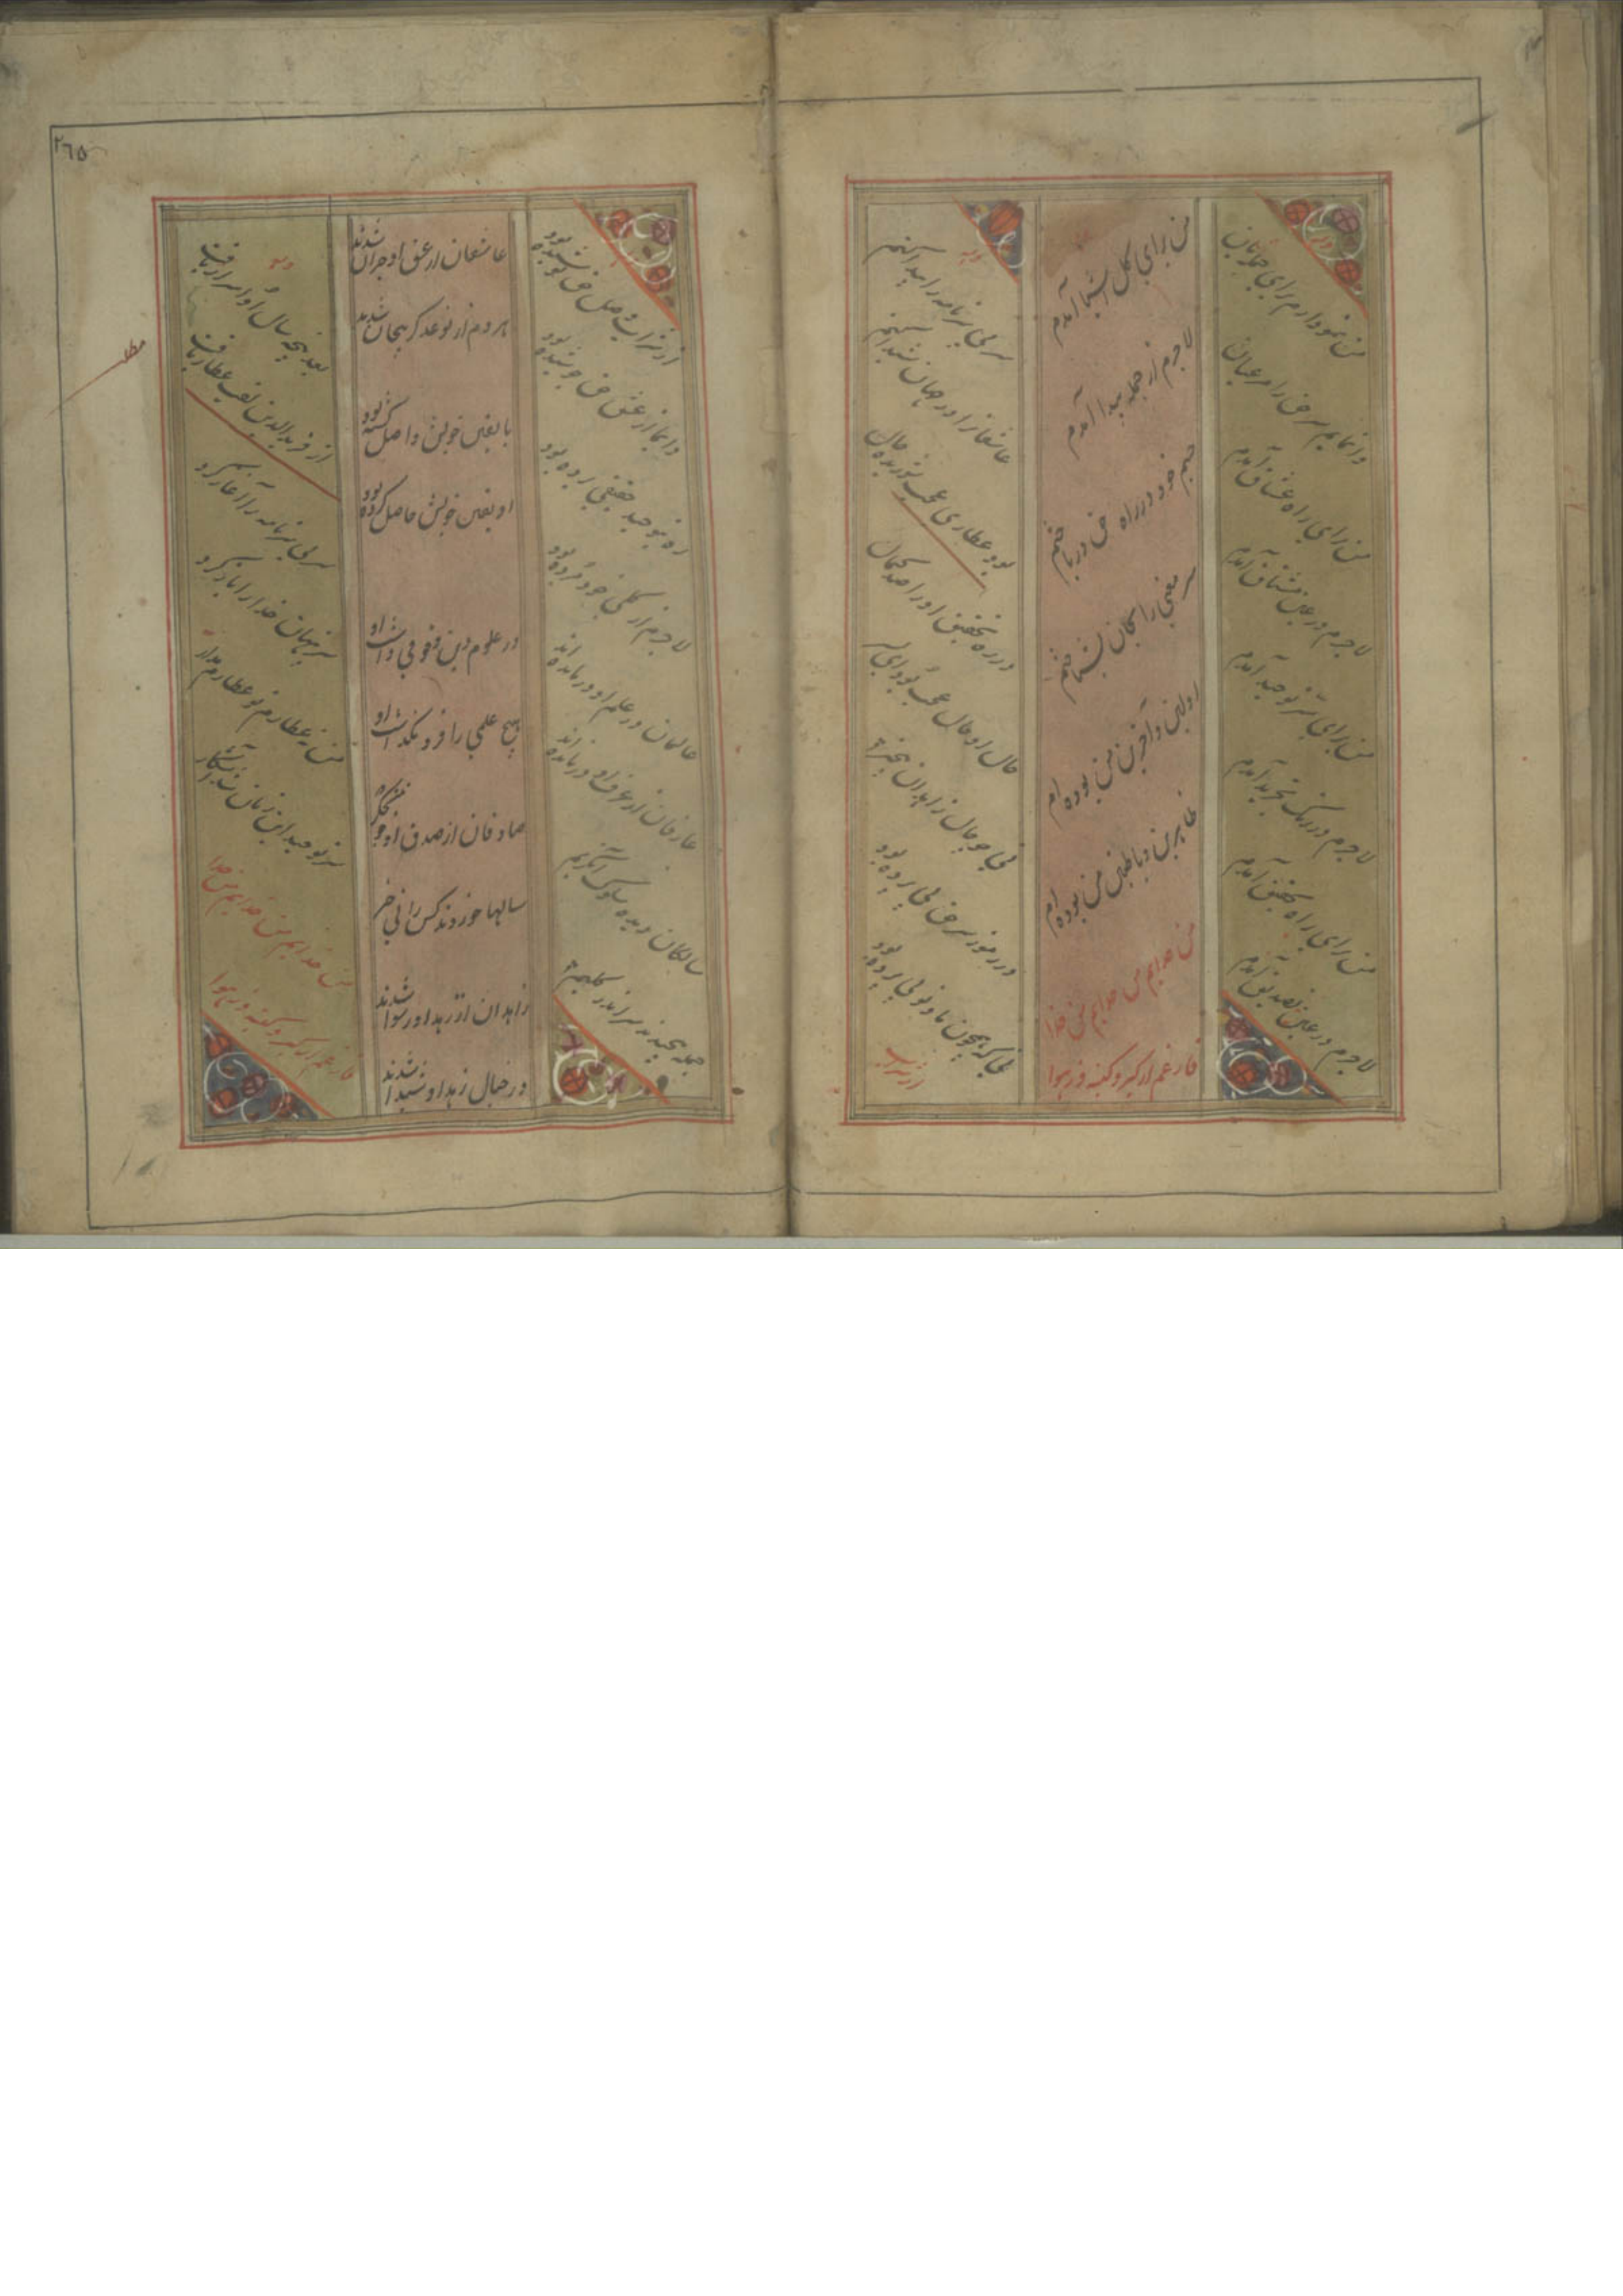 من نمودارم برای جمله‌شان
وانمایم سر حق را من عیان
من برای راه عشاق آمدم
لاجرم در عین مشتاق آمدم
من برای سر توحید آمدم
لاجرم در تجرید آمدم
من برای راه تحقیق آمدم
لاجرم در عین تصدیق آمدم
من برای کل اشیا آمدم
لاجرم از جمله پیدا آمدم
جسم خود در راه حق درباختم
سر معنی را نشناختم
اولین و آخرین من بوده‌ام
ظاهرین و باطنین من بوده‌ام
من خدایم من خدایم من خدا
فارغم از کبر و کینه وز هوا
سر بی سرنامه را پیدا کنم
عاشقانرا در جهان شیدا کنم
بود عطاری عجب شوریده حال
در ره تحقیق او را صد کمال
حال او حال عجب بود ای پسر
نی چو حال زاهدان بیخبر
در رموز سر حق پی برده بود
نی که همچون ما و تو پی پرده بود
از شراب
٢٦٥
از شراب وصل حق نوشیده بود
دایما از عشق حق جوشیده بود
ره بتوحید حقیقی برده بود
لاجرم از کلی خود مرده بود
عالمان در علم او درمانده‌اند
عارفان از عرف او درمانده‌اند
سالکان دیده سلوک
جمله بیچند سر اندر گلیم
عاشقان از عشق او حیران شدند
هر دم از نوعی دگر بیجان شدند
با یقین خویش واصل گشته بود
او یقین خویش حاصل کرده بود
در علوم دین وقوفی داشت او
هیچ علمی را فرو نگذاشت او
صادقان از صدق او خون جگر
سالها خوردند کس را نی خبر
زاهدان از زهد او رسوا شدند
در خیال زهد او شیدا شدند
بعد پنجه سال او اسرار یافت
از فریدالدین لقب عطار یافت
سر بی سرنامه را آغاز کرد
سر پنهان خدا را باز کرد
من نه عطارم تو عطارم مدار
سر توحید این زمان شد آشکار
من خدایم من خدایم من خدا
فارغم از کبر و کینه وز هوا